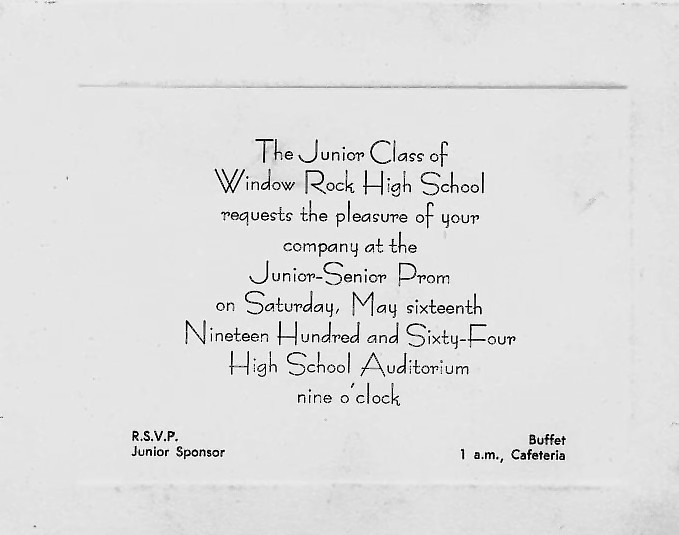 The Junior Class of
Window Rock High School
requests the pleasure of your
company at the
Junior-Senior Prom
on Saturday, May sixteenth
Nineteen Hundred and Sixty-Four
High School Auditorium
nine o'clock
R.S.V.P.
Junior Sponsor
Buffet
1 a.m., Cafeteria